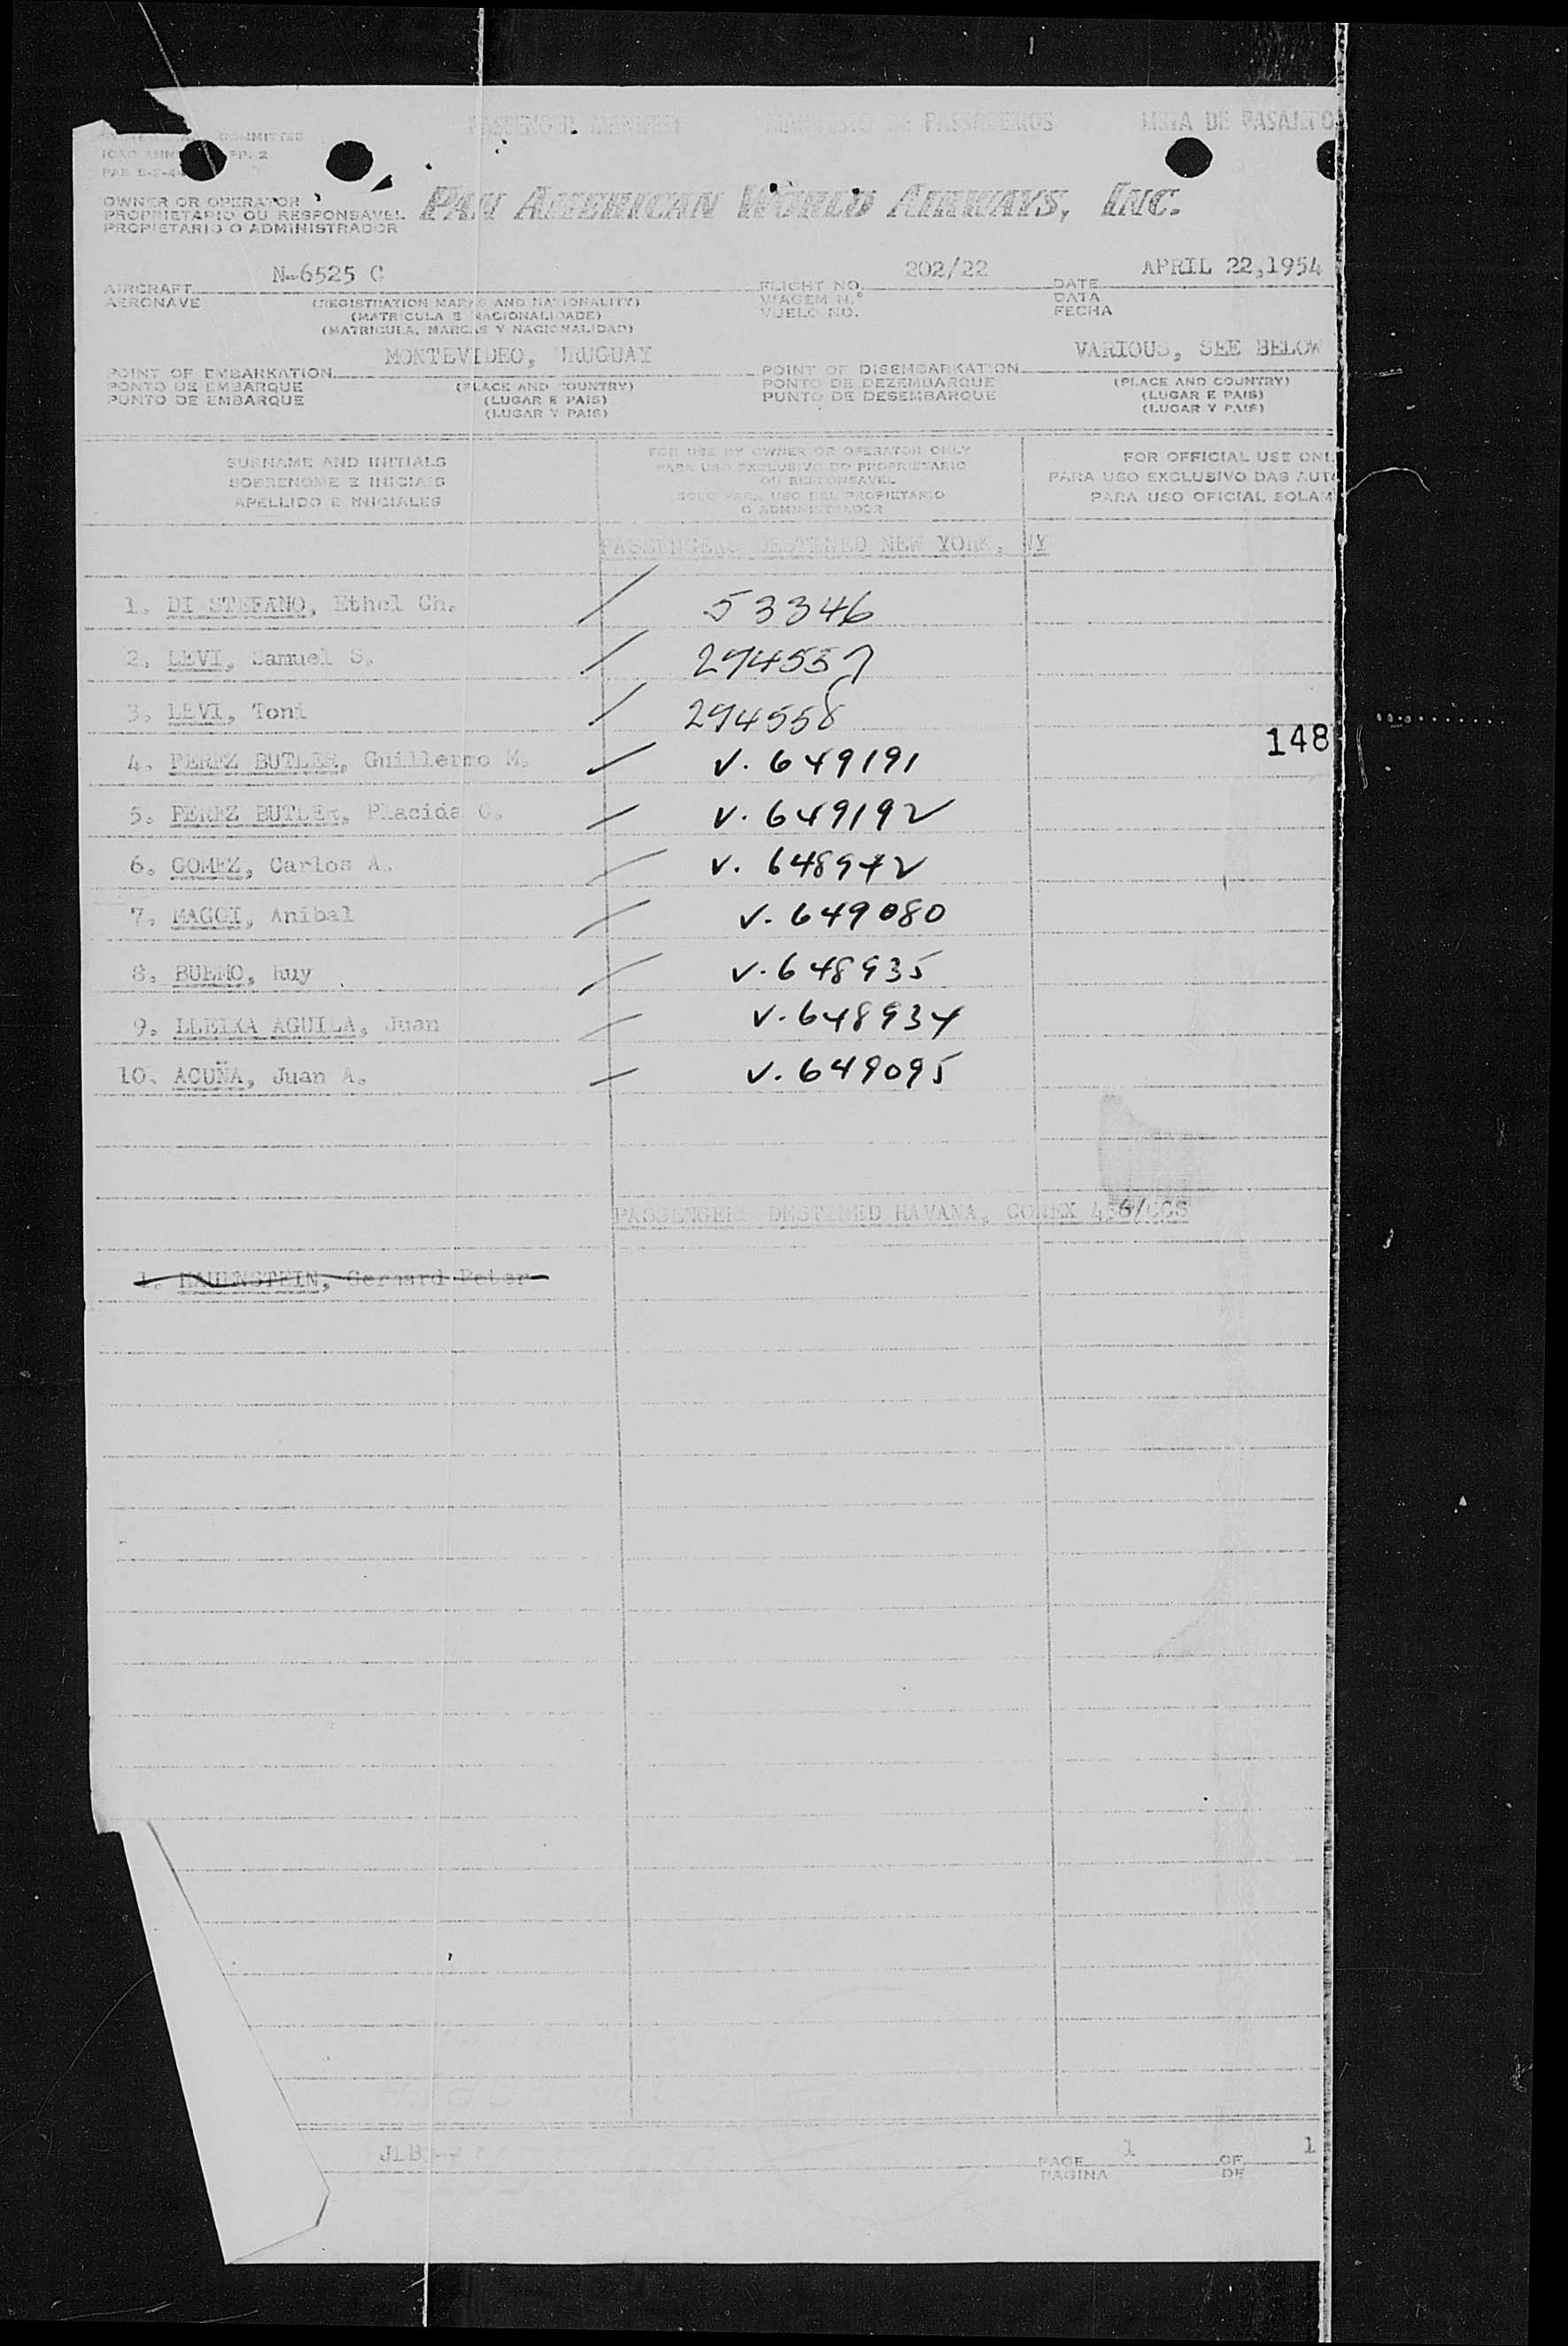 PASSENGER MANIFEST MANIFESTO DE PASSAGEIROS LISTA DE PASAJERO
COMMITTEE
ICAO ANN PP. 2
PAN AMERICAN WORLD AIRWAYS, INC.
OWNER OR OPERATOR
PROPRIETARIO OU RESPONSAVEL
PROPIETARIO O ADMINISTRADOR
N-6525 C 202/22 APRIL 22,1954
AIRCRAFT FLIGHT NO. DATE
AERONAVE (REGISTRATION MARKS AND NATIONALITY) VIAGEM N.º DATA
(MATRICULA E NACIONALIDADE) VUELO NO. FECHA
(MATRICULA, MARCAS Y NACIONALIDAD)
MONTEVIDEO, URUGUAY VARIOUS, SEE BELOW
POINT OF EMBARKATION POINT OF DISEMBARKATION
PONTO DE EMBARQUE (PLACE AND COUNTRY) PONTO DE DEZEMBARQUE (PLACE AND COUNTRY)
PUNTO DE EMBARQUE (LUGAR E PAIS) PUNTO DE DESEMBARQUE (LUGAR E PAIS)
(LUGAR Y PAIS) (LUGAR Y PAIS)
SURNAME AND INITIALS
SOBRENOME E INICIAIS
APELLIDO E INICIALES
FOR USE BY OWNER OR OPERATOR ONLY
PARA USO EXCLUSIVO DO PROPRIETARIO
OU RESPONSAVEL
SOLO PARA USO DEL PROPIETARIO
O ADMINISTRADOR
FOR OFFICIAL USE ONL
PARA USO EXCLUSIVO DAS AUTO
PARA USO OFICIAL SOLAM
PASSENGERS DESTINED NEW YORK, NY
1. DI STEFANO, Ethel Ch. 53346
2. LEVI, Samuel S. 294557
3. LEVI, Toni 294558
148
4. PEREZ BUTLER, Guillermo M. V. 649191
5. PEREZ BUTLER, Placida C. V. 649192
6. GOMEZ, Carlos A. V. 648942
7. MAGGI, Anibal V. 649080
8. BUENO, Ruy V. 648935
9. LLEIXA AGUILA, Juan V. 648934
10. ACUÑA, Juan A. V. 649095
PASSENGERS DESTINED HAVANA, CONEX
1. Gerhard Peter
JLB
PAGE 1 OF 1
PAGINA DE